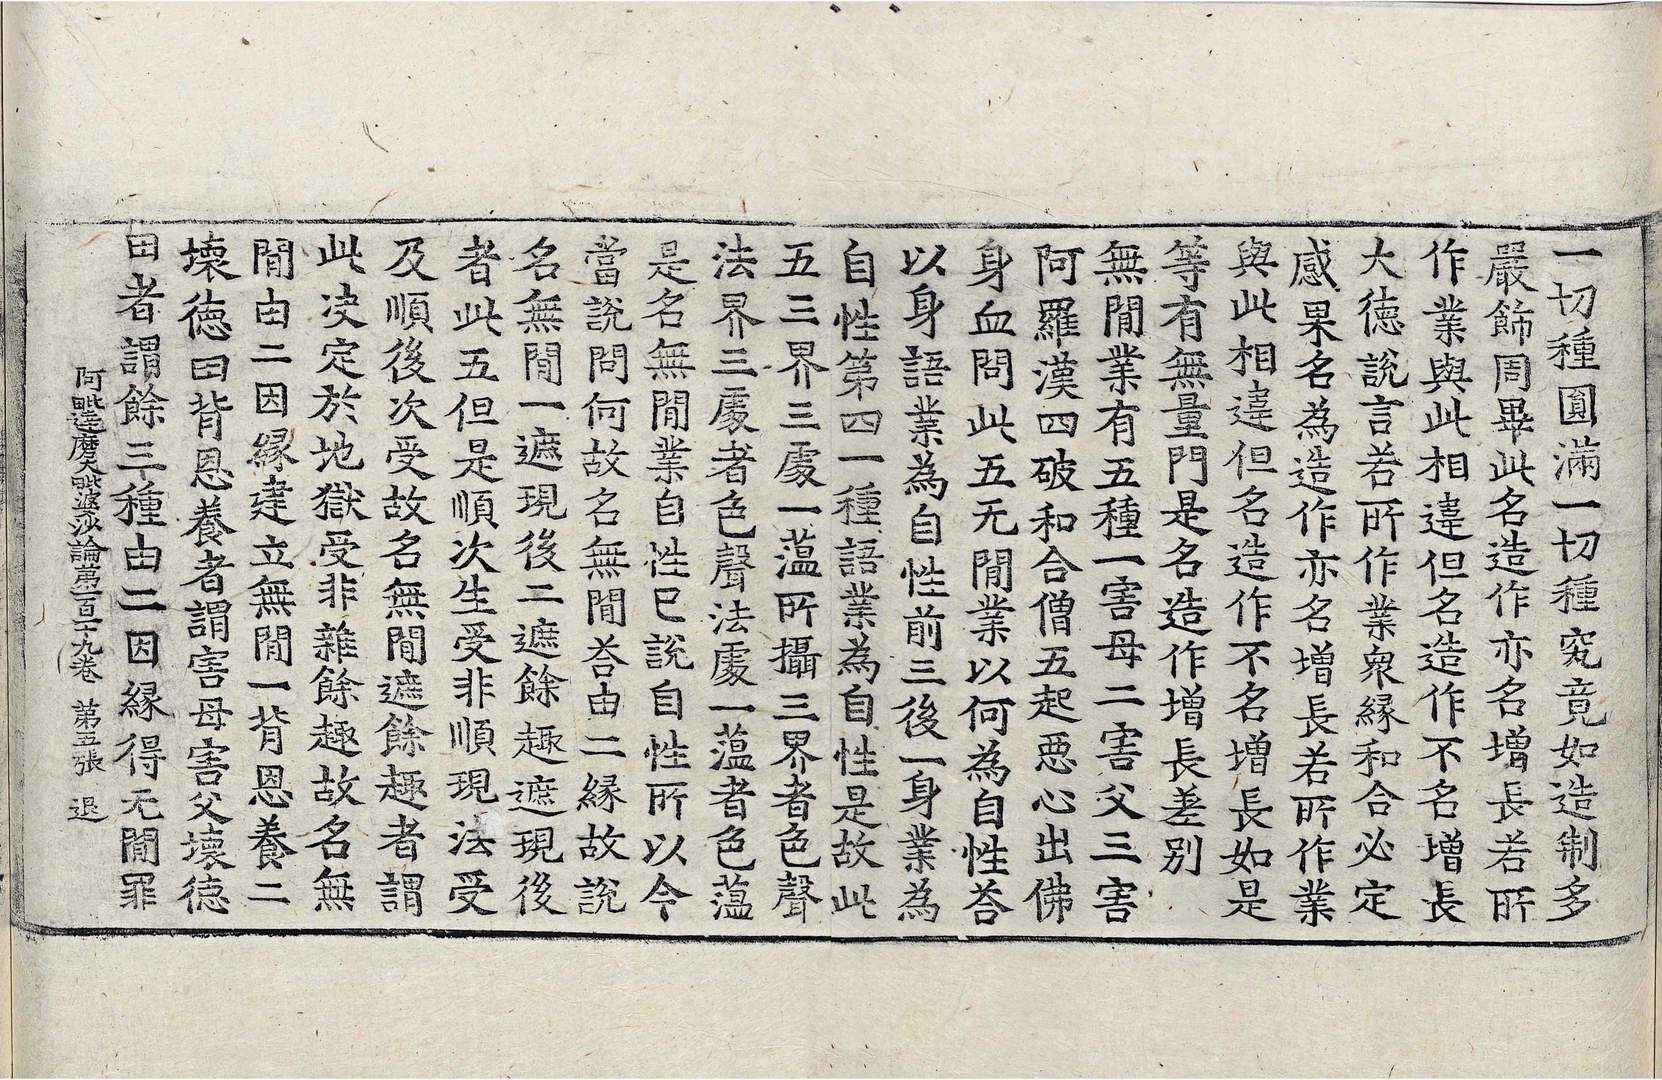 一切種圓滿一切種究竟如造制多
嚴飾周畢此名造作亦名增長若所
作業與此相違但名造作不名增長
大德說言若所作業衆緣和合必定
感果名為造作亦名增長若所作業
與此相違但名造作不名增長如是
等有無量門是名造作增長差別
無閒業有五種一害母二害父三害
阿羅漢四破和合僧五起惡心出佛
身血問此五无閒業以何為自性荅
以身語業為自性前三後一身業為
自性第四一種語業為自性是故此
五三界三處一薀所攝三界者色聲
法界三處者色聲法處一薀者色薀
是名無閒業自性已說自性所以今
當說問何故名無閒荅由二緣故說
名無閒一遮現後二遮餘趣遮現後
者此五但是順次生受非順現法受
及順後次受故名無閒遮餘趣者謂
此决定於地獄受非雜餘趣故名無
閒由二因緣建立無閒一背恩養二
壞德田背恩養者謂害母害父壞德
田者謂餘三種由二因緣得无閒罪
阿毗達磨大毗婆沙論第一百一十九卷 第五張 退